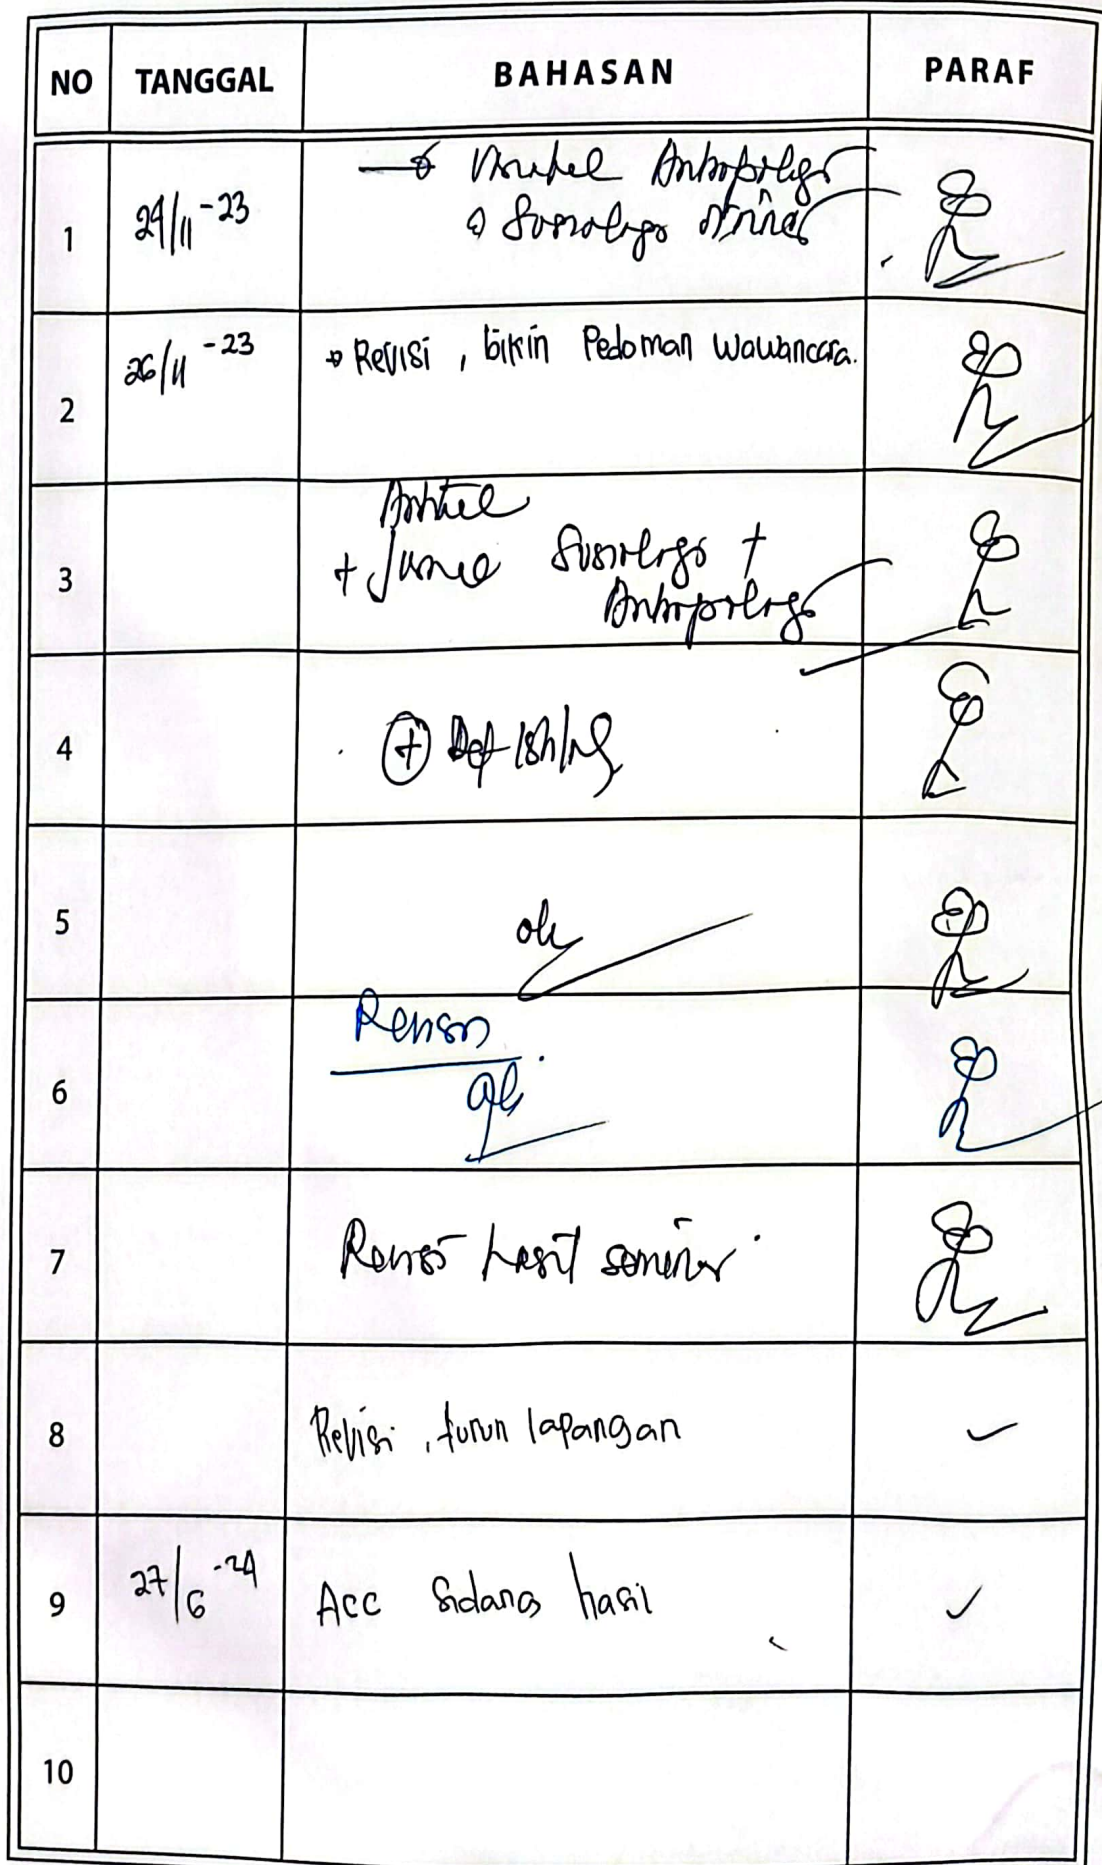 NO TANGGAL BAHASAN PARAF
1 Antropologi
Sosiologi
2 26/11 -23 Revisi, bikin Pedoman Wawancara.
3 Artikel
+ Jurnal Sosiologi +
Antropologi
4 + Def
5 ok
6 Revisi
7 Revisi hasil seminar
8 Revisi, turun lapangan
9 27/6 -24 Acc Sidang hasil
10